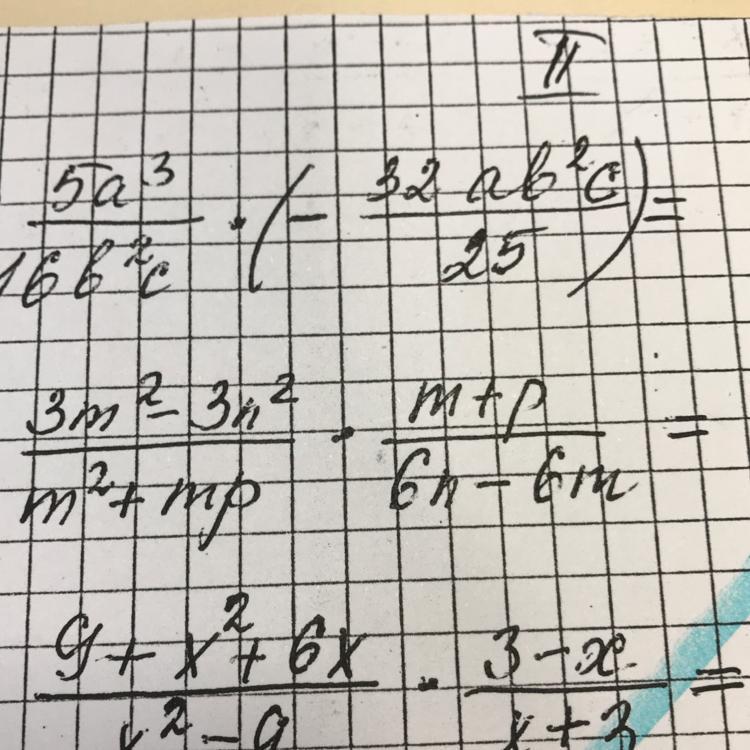 II
5a³/16b²c · (− 32ab²c/25) =
3m² − 3n²/m² + mp · m + p/6n − 6m =
9 + x² + 6x/x² − 9 · 3 − x/x + 3 =